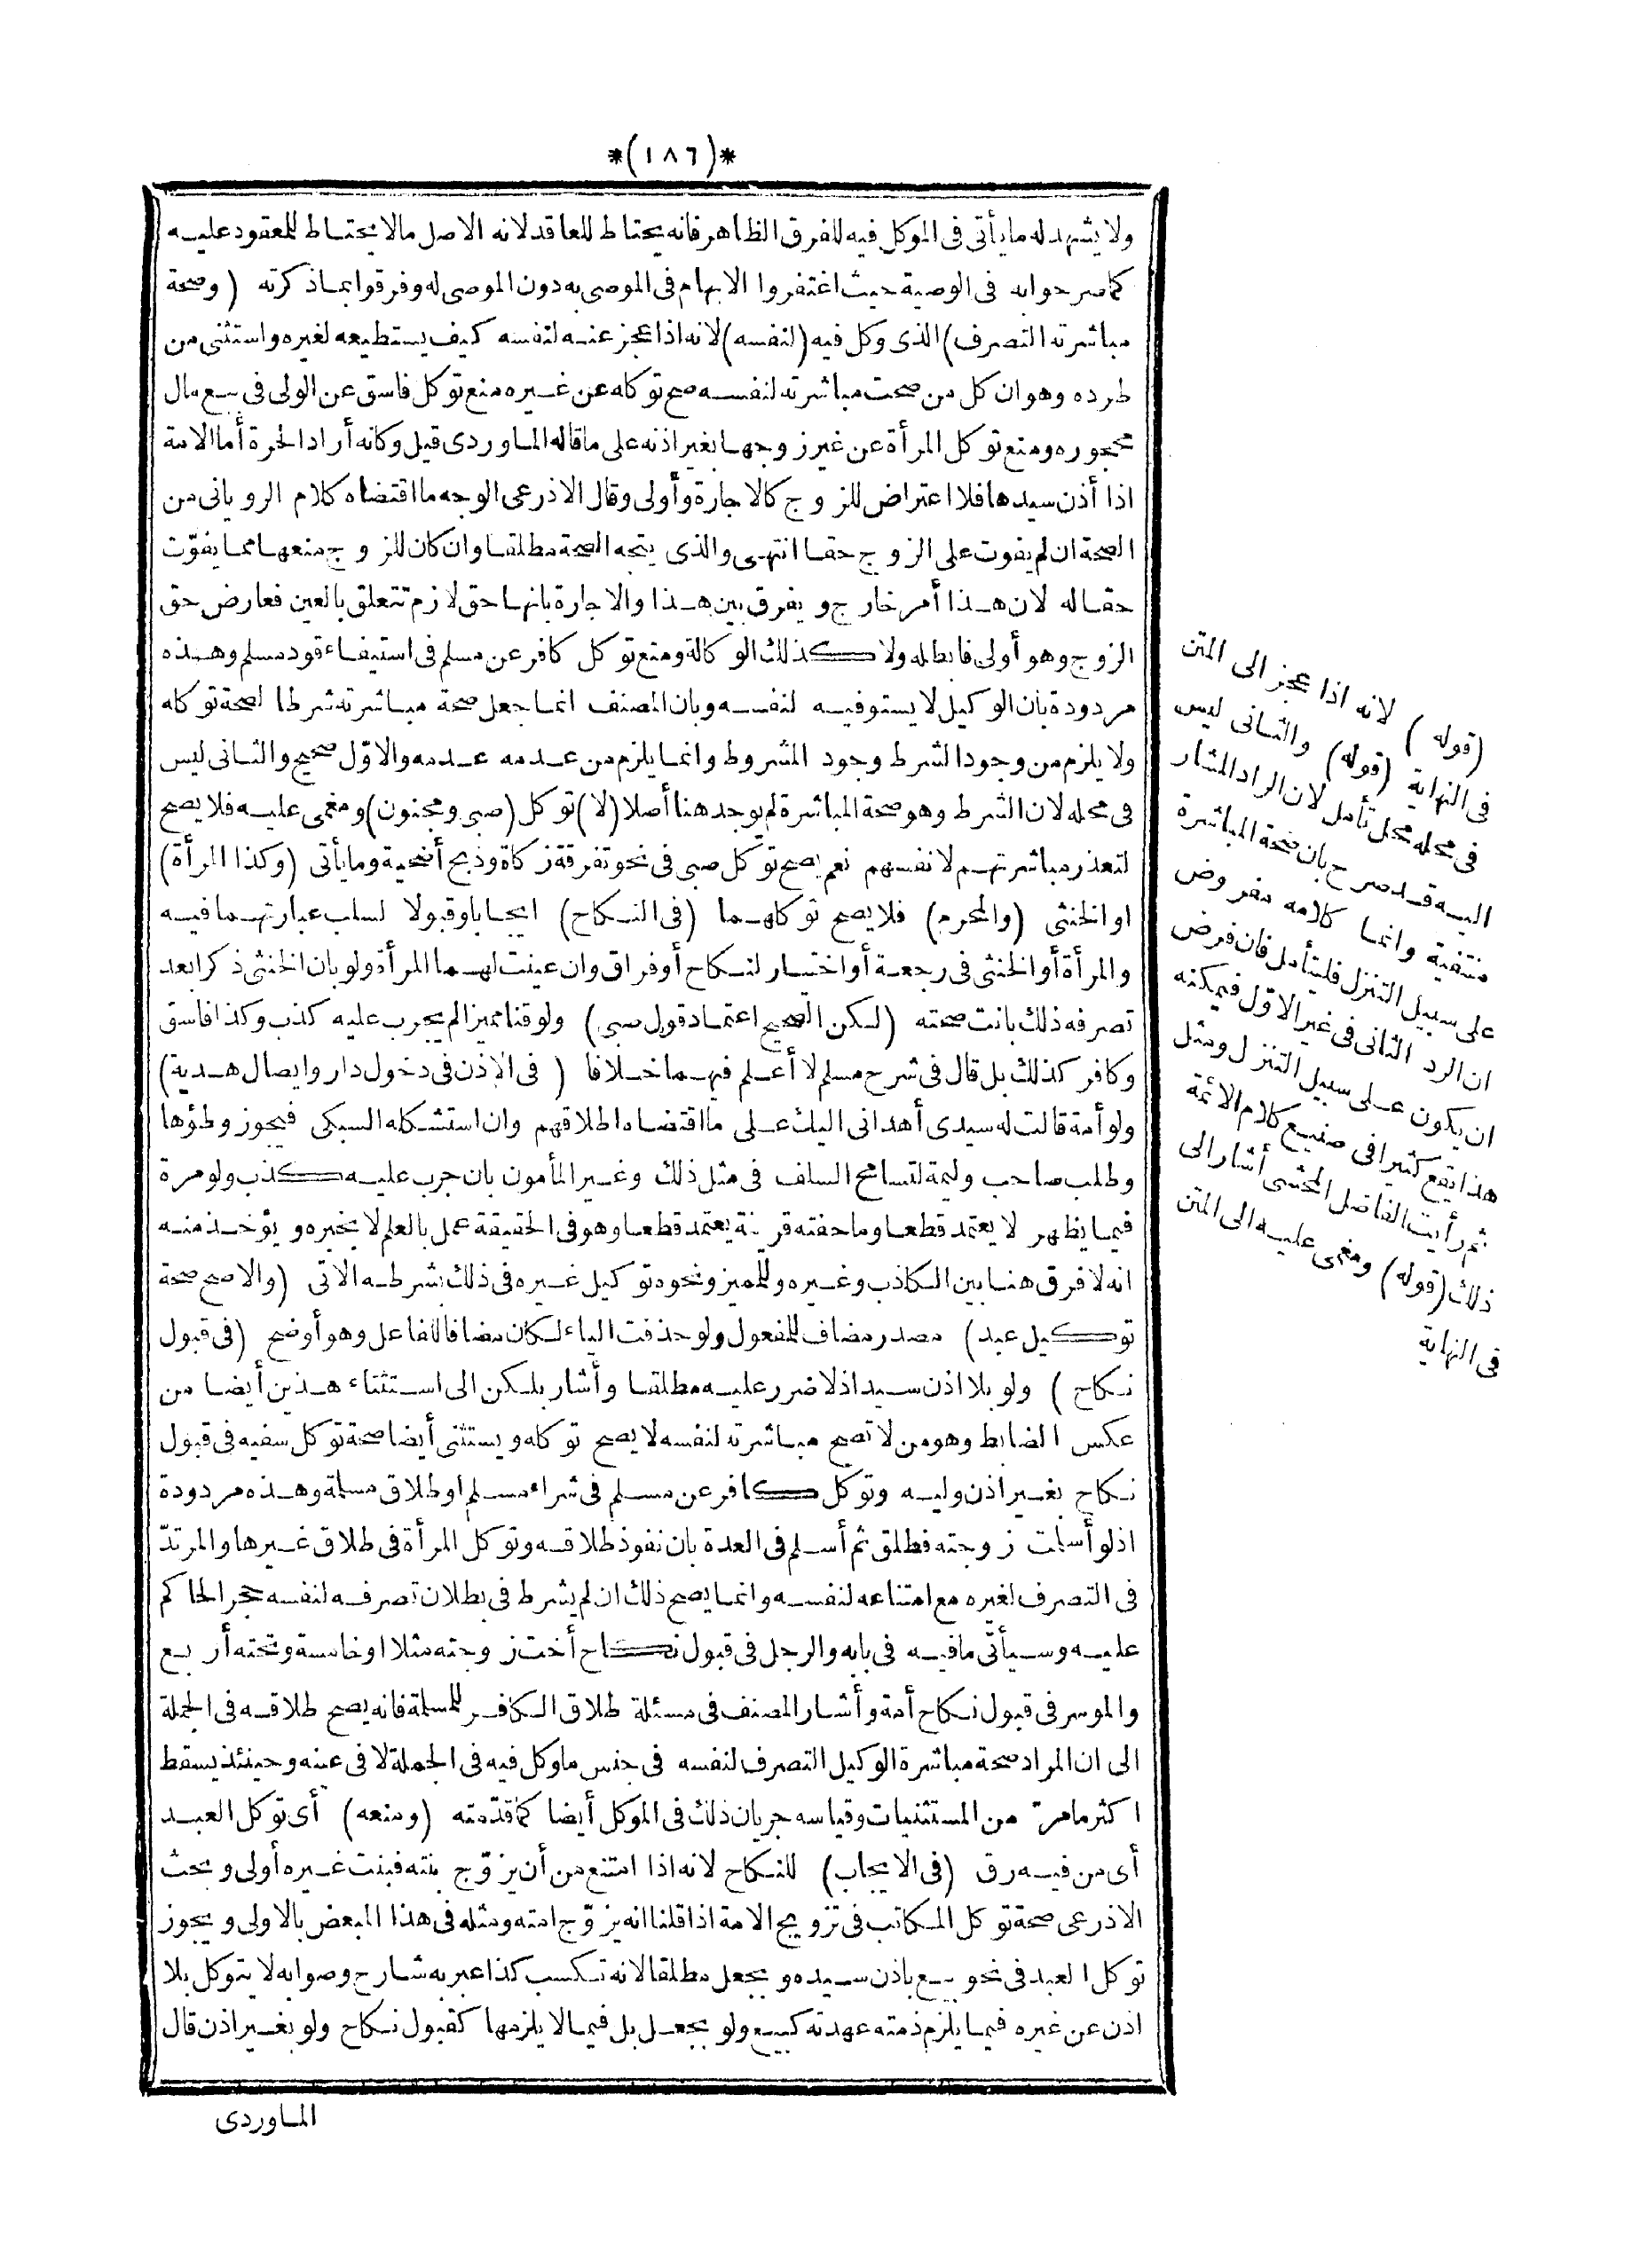 *(١٨٦)*
ولا يشهد له ما يأتى فى الموكل فيه للفرق الظاهر فانه يحتاط للعاقد لانه الاصل مالا يحتاط للمعقود عليه
كما صرحوا به فى الوصية حيث اغتفروا الابهام فى الموصى به دون الموصى له وفرقوا بماذكرته (وصحة
مباشرته التصرف) الذى وكل فيه (لنفسه) لانه اذا عجز عنه لنفسه كيف يستطيعه لغيره واستثنى من
طرده وهو ان كل من صحت مباشرته لنفسه صح توكله عن غيره منع توكل فاسق عن الولى فى بيع مال
محجوره ومنع توكل المرأة عن غير زوجها بغير اذنه على ما قاله الماوردى قيل وكانه أراد الحرة أما الامة
اذا أذن سيدها فلا اعتراض للزوج كالاجارة وأولى وقال الاذرعى الوجه ما اقتضاه كلام الرويانى من
الصحة ان لم يفوت على الزوج حقا انتهى والذى يتجه الصحة مطلقا وان كان للزوج منعها مما يفوّت
حقاله لان هذا أمر خارج ويفرق بين هذا والاجارة بانها حق لازم تتعلق بالعين فعارض حق
الزوج وهو أولى فابطله ولا كذلك الوكالة ومنع توكل كافر عن مسلم فى استيفاء قود مسلم وهذه
مردودة بان الوكيل لا يستوفيه لنفسه وبان المصنف انما جعل صحة مباشرته شرطا لصحة توكله
ولا يلزم من وجود الشرط وجود المشروط وانما يلزم من عدمه عدمه والاوّل صحيح والثانى ليس
فى محله لان الشرط وهو صحة المباشرة لم يوجد هنا أصلا (لا) توكل (صبى ومجنون) ومغمى عليه فلا يصح
لتعذر مباشرتهم لانفسهم نعم يصح توكل صبى فى نحو تفرقة زكاة وذبح أضحية وما يأتى (وكذا المرأة)
او الخنثى (والمحرم) فلا يصح توكلهما (فى النكاح) ايجابا وقبولا لسلب عبارتهما فيه
والمرأة أو الخنثى فى رجعة أو اختيار لنكاح أو فراق وان عينت لهما المرأة ولو بان الخنثى ذكرا بعد
تصرفه ذلك بانت صحته (لكن الصحيح اعتماد قول صبى) ولو قنا مميزا لم يجرب عليه كذب وكذا فاسق
وكافر كذلك بل قال فى شرح مسلم لا أعلم فيهما خلافا (فى الاذن فى دخول دار وايصال هدية)
ولو أمة قالت له سيدى أهدانى اليك على ما اقتضاه اطلاقهم وان استشكله السبكى فيجوز وطؤها
وطلب صاحب وليمة لتسامح السلف فى مثل ذلك وغير المأمون بان جرب عليه كذب ولو مرة
فيما يظهر لا يعتمد قطعا وما حفته قرينة يعتمد قطعا وهو فى الحقيقة عمل بالعلم لا بخبره ويؤخذ منه
انه لا فرق هنا بين الكاذب وغيره وللمميز ونحوه توكيل غيره فى ذلك بشرطه الاتى (والاصح صحة
توكيل عبد) مصدر مضاف للمفعول ولو حذفت الياء لكان مضافا للفاعل وهو أوضح (فى قبول
نكاح) ولو بلا اذن سيد اذ لا ضرر عليه مطلقا وأشار بلكن الى استثناء هذين أيضا من
عكس الضابط وهو من لا تصح مباشرته لنفسه لا يصح توكله ويستثنى أيضا صحة توكل سفيه فى قبول
نكاح بغير اذن وليه وتوكل كافر عن مسلم فى شراء مسلم او طلاق مسلمة وهذه مردودة
اذ لو أسلمت زوجته فطلق ثم أسلم فى العدة بان نفوذ طلاقه وتوكل المرأة فى طلاق غيرها والمرتدّ
فى التصرف لغيره مع امتناعه لنفسه وانما يصح ذلك ان لم يشرط فى بطلان تصرفه لنفسه حجر الحاكم
عليه وسيأتى ما فيه فى بابه والرجل فى قبول نكاح أخت زوجته مثلا او خامسة وتحته أربع
والموسر فى قبول نكاح أمة وأشار المصنف فى مسئلة طلاق الكافر للمسلمة فانه يصح طلاقه فى الجملة
الى ان المراد صحة مباشرة الوكيل التصرف لنفسه فى جنس ما وكل فيه فى الجملة لا فى عينه وحينئذ يسقط
اكثر ما مرّ من المستثنيات وقياسه جريان ذلك فى الموكل أيضا كما قدّمته (ومنعه) أى توكل العبد
أى من فيه رق (فى الايجاب) للنكاح لانه اذا امتنع من أن يزوّج بنته فبنت غيره أولى وبحث
الاذرعى صحة توكل المكاتب فى تزويج الامة اذا قلنا انه يزوّج امته ومثله فى هذا المبعض بالاولى ويجوز
توكل العبد فى نحو بيع باذن سيده وبجعل مطلقا لانه تكسب كذا عبر به شارح وصوابه لا يتوكل بلا
اذن عن غيره فيما يلزم ذمته عهدته كبيع ولو بجعل بل فيما لا يلزمها كقبول نكاح ولو بغير اذن قال
الماوردى
(قوله) لانه اذا عجز الى المتن
فى النهاية (قوله) والثانى ليس
فى محله محل تأمل لان الراد المشار
اليه قد صرح بان صحة المباشرة
منتفية وانما كلامه مفروض
على سبيل التنزل فليتأمل فان فرض
ان الرد الثانى فى غير الاوّل فيمكنه
ان يكون على سبيل التنزل ومثل
هذا يقع كثيرا فى صنيع كلام الائمة
ثم رأيت الفاضل المحشى أشار الى
ذلك (قوله) ومغمى عليه الى المتن
فى النهاية